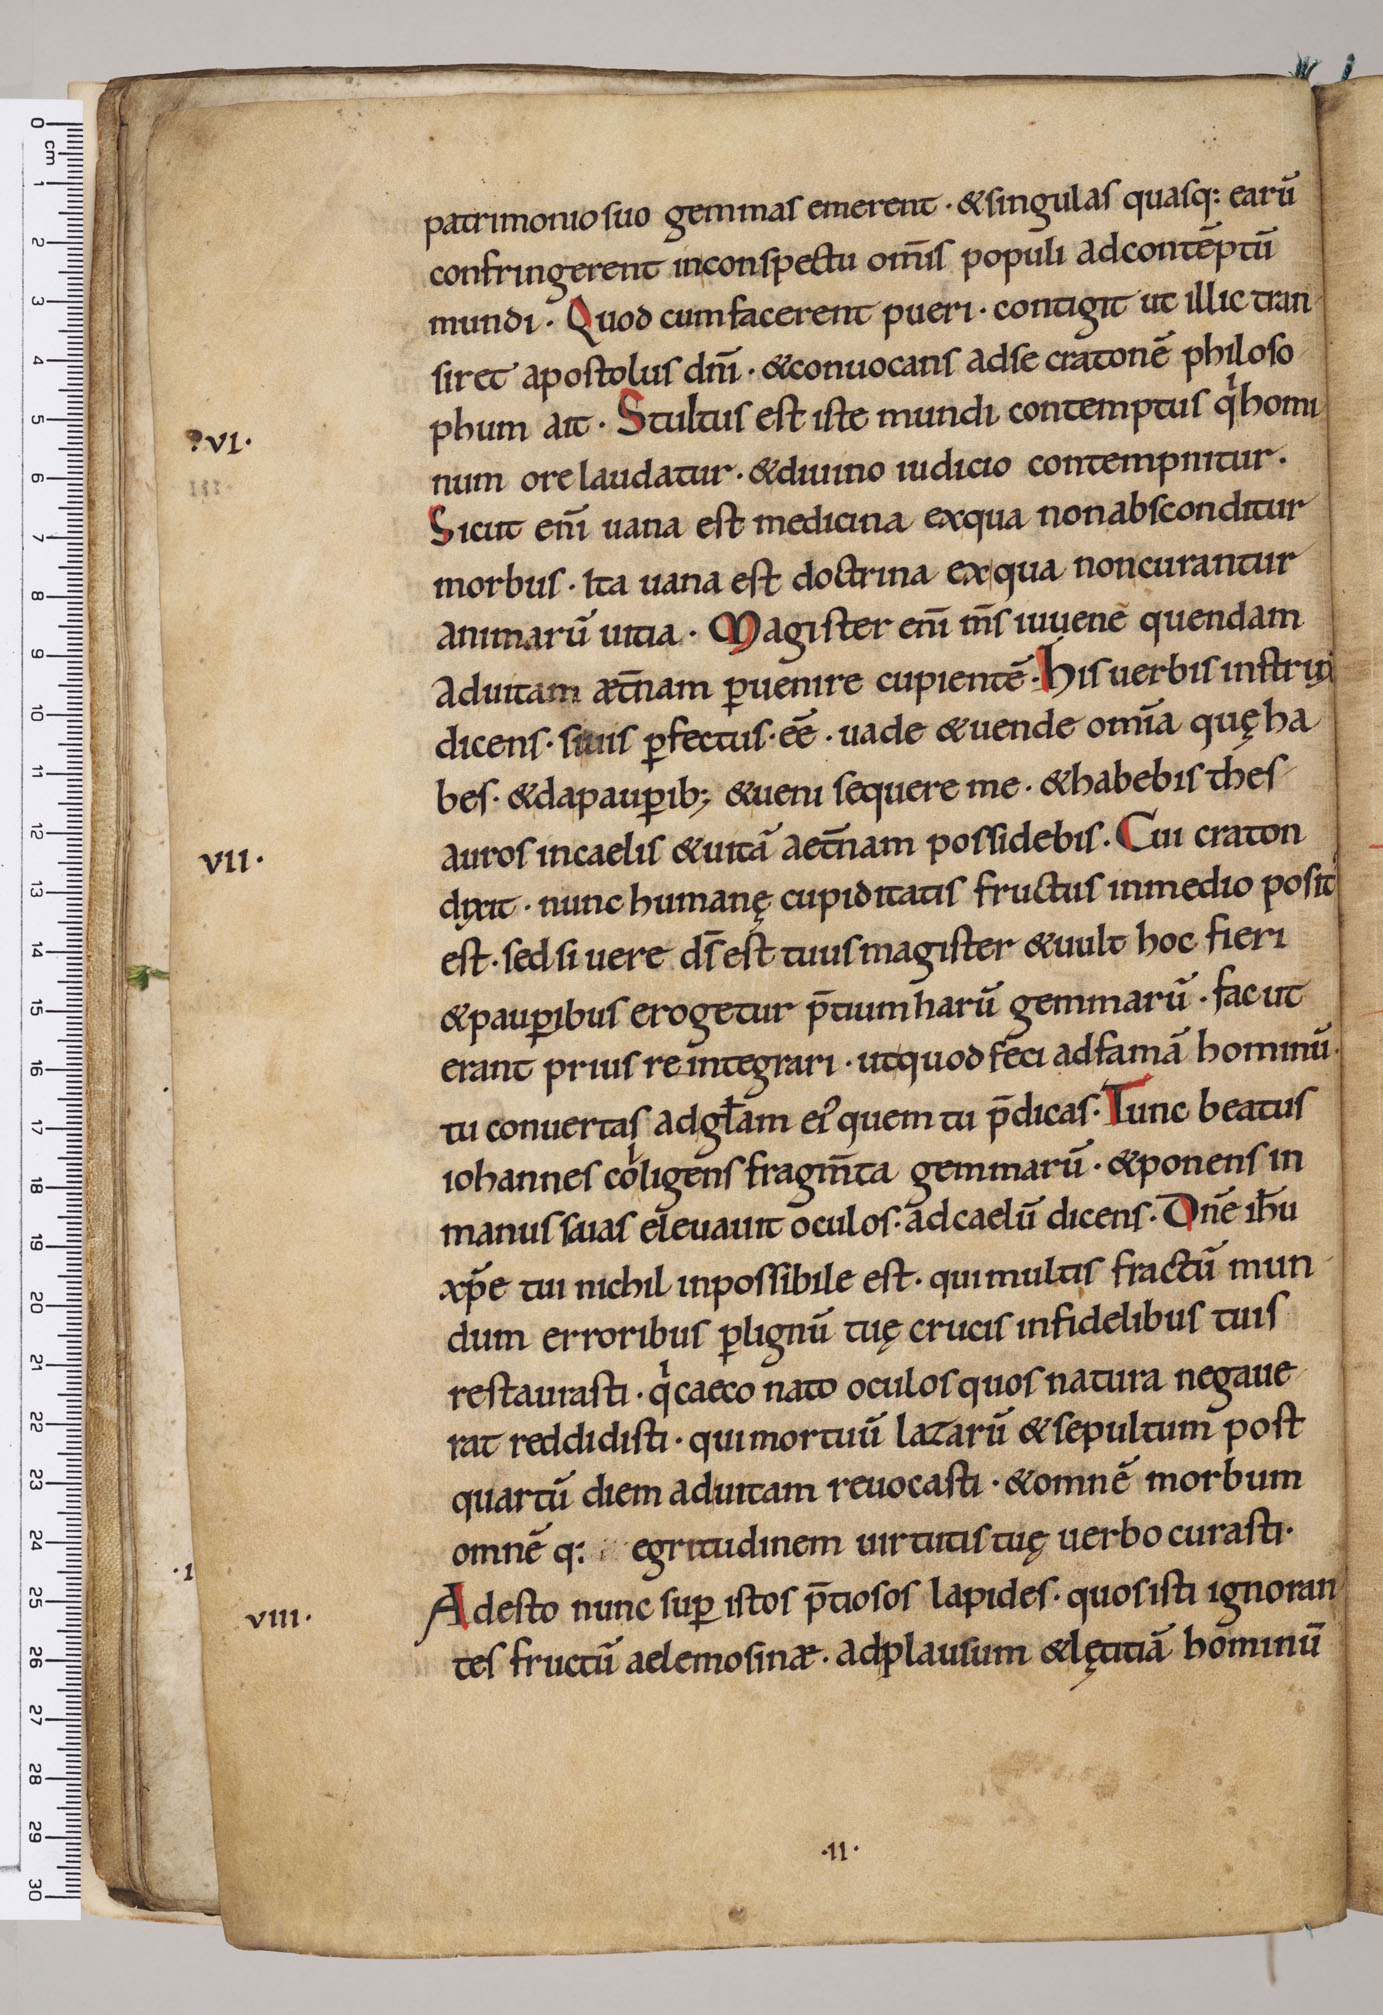 patrimonio suo gemmas emerent · & singulas quasq: earū
confringerent in conspectu om̄is populi ad contēptū
mundi · Quod cum facerent pueri · contigit ut illic tran
siret apostolus dn̄i · & conuocans ad se cratonē philoso
phum ait · Stultus est iste mundi contemptus qͥ homi
·VI·
num ore laudatur · & diuino iudicio contempnitur ·
III
Sicut eni̅ uana est medicina ex qua non absconditur
morbus · ita uana est doctrina ex qua non curantur
animarū uitia · Magister eni̅ m̄s iuuenē quendam
ad uitam æt̄nam ꝑuenire cupientē · His uerbis instrux
dicens · si uis ꝑfectus · eē · uade & uende om̄ia quę ha
bes · & da pauꝑib; & ueni sequere me · & habebis thes
auros in caelis & uitā aet̄nam possidebis · Cui craton
VII ·
dixit · nunc humanę cupiditatis fructus in medio posit
est · sed si uere ds̄ est tuus magister & uult hoc fieri
& pauꝑibus erogetur p̄tium harū gemmarū · fac ut
erant prius reintegrari · ut quod feci ad famā hominū ·
tu conuertas ad gl̄am eiꝰ quem tu p̄dicas · Tunc beatus
iohannes coˡligens fragm̄ta gemmarū · & ponens in
manus suas eleuauit oculos · ad caelū dicens · Dn̄e ih̄u
xp̄e tui nichil inpossibile est · qui multis fractū mun
dum erroribus ꝑ lignū tuę crucis in fidelibus tuis
restaurasti · qͥ caeco nato oculos quos natura negaue
rat reddidisti · qui mortuū lazarū & sepultum post
quartū diem ad uitam reuocasti · & omnē morbum
omnē q: egritudinem uirtutis tuę uerbo curasti ·
· 1
Adesto nunc suꝑ istos p̄tiosos lapides · quos isti ignoran
VIII ·
tes fructū aelemosinæ · ad plausum & lętitiā hominū
· II ·